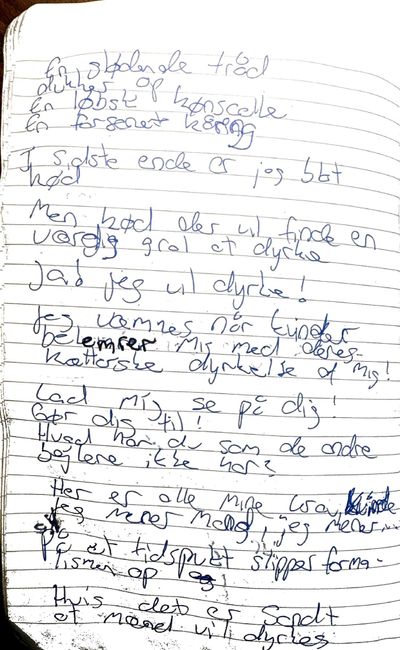 En glødende tråd
dukker op
En løbsk kønscelle
En forsenet kæring
I sidste ende er jeg blot
kød
Men kød der vil finde en
værdig gral at dyrke
Ja! jeg vil dyrke!
Jeg væmmes når kvinder
belemrer mig med deres
kætterske dyrkelse af mig!
Lad mig se på dig!
Gør dig til!
Hvad har du som de andre
bejlere ikke har?
Her er alle mine krav, kvinde
Jeg mener mand, jeg mener...
På et tidspukt slipper forma-
lismen op
Hvis det er Sandt
at mænd vil dyrkes